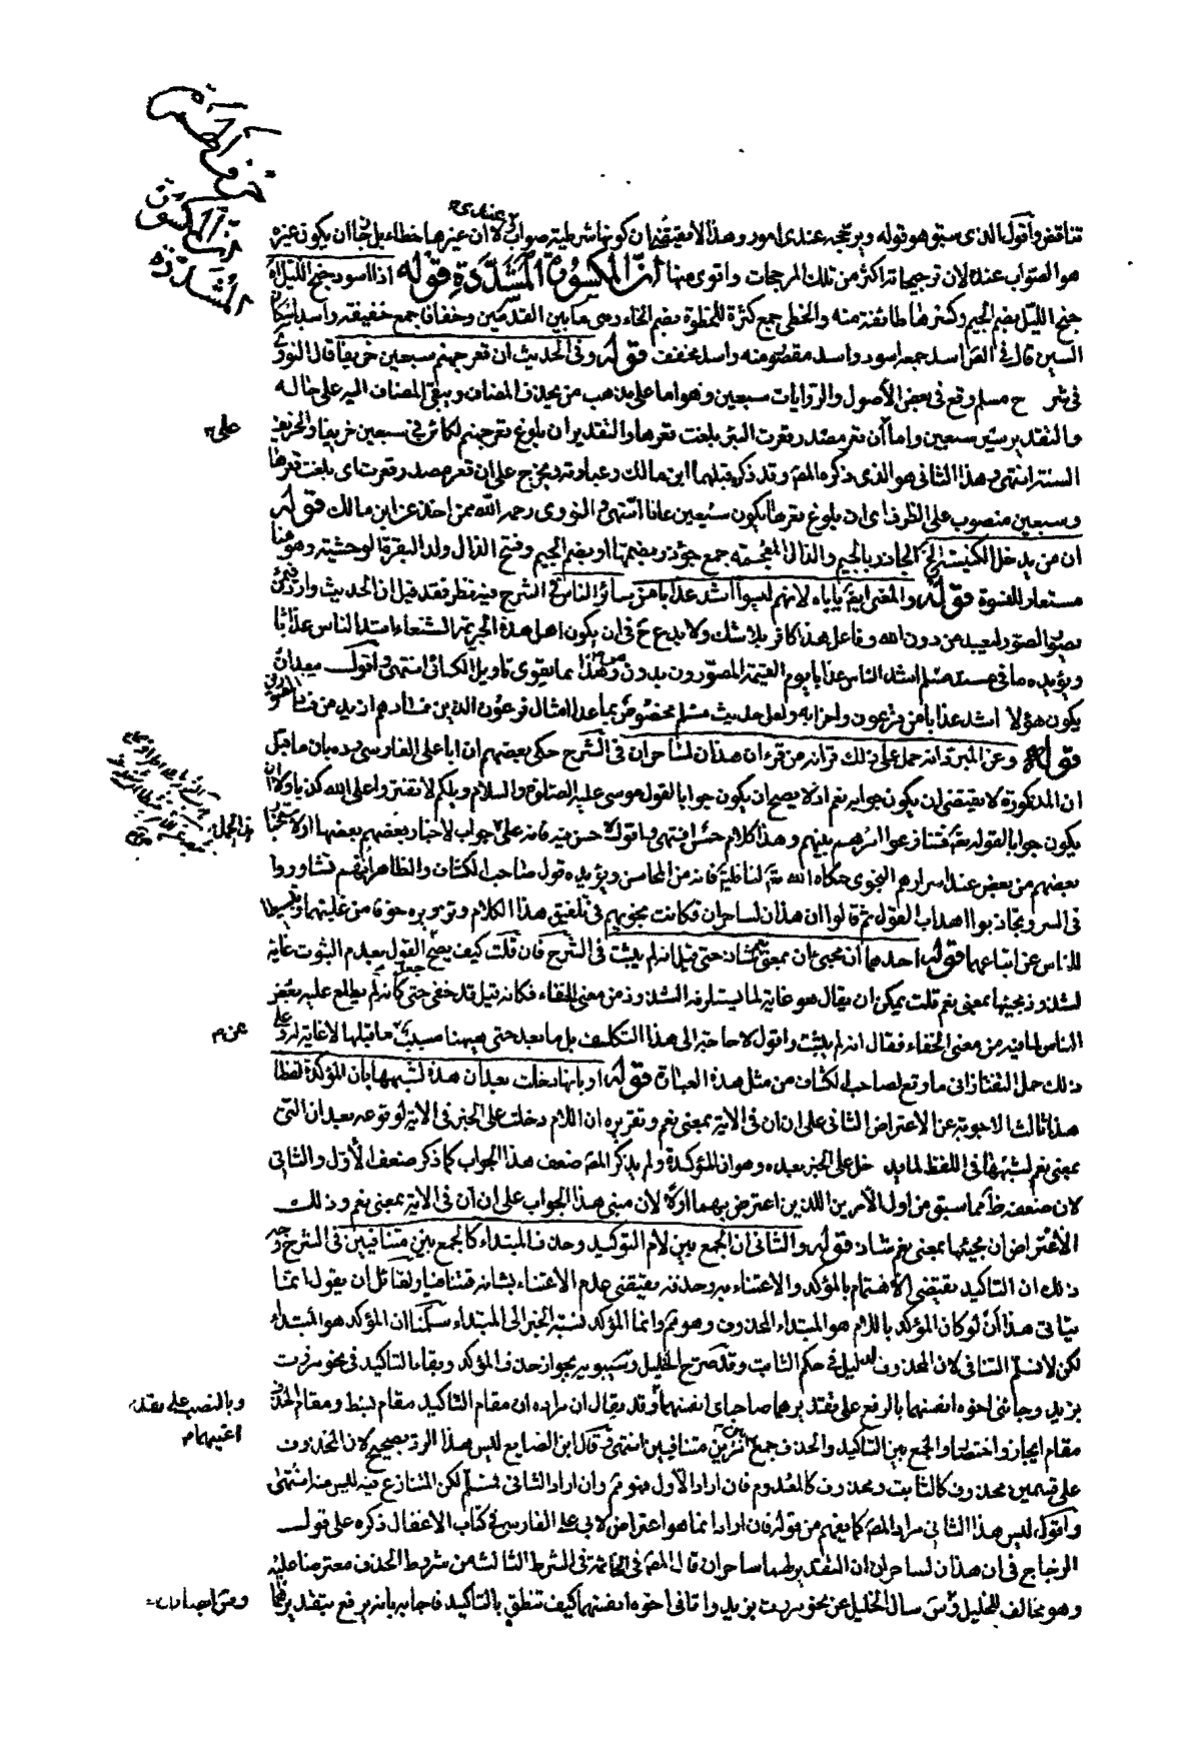 حرف الحمزة
إنّ المكسورة
المشدّدة
تناقض وأقول الذى سبق هو قوله ويرجحه عندى امور وهذا لا يقتضى ان كونها شرطية صواب لا ان غيرها خطاء بل يجوز ان يكون غيره
هو الصواب عنده لان ترجيحاته اكثر من تلك المرجحات واقوى منها إنّ المكسورة المشدّدة قوله اذا اسود جنح الليل اه
جنح الليل بضم الجيم وكسرها طائفة منه والخطى جمع كثرة للخطوة بضم الخاء وهى ما بين القدمين وخفافا جمع خفيفة واسد باسكان
السين قال فى اسد جمعه اسود واسد مقصور منه واسد مخفف قوله وفى الحديث ان قعر جهنم سبعين خريفا قال النووى
فى شرح مسلم وقع فى بعض الأصول والروايات سبعين وهو اما على مذهب من يحذف المضاف ويبقى المضاف اليه على حاله
والتقدير سير سبعين واما أن قعر مصدر قعرت البئر بلغت قعرها والتقدير ان بلوغ قعر جهنم لكائن فى سبعين خريفا والخريف
على
السنة انتهى وهذا الثانى هو الذى ذكره المص وقد ذكره قبلهما ابن مالك وعبارته ويخرج على ان قعر مصدر قعرت اى بلغت قعرها
وسبعين منصوب على الظرف اى ان بلوغ قعرها يكون سبعين عاما انتهى والنووى رحمه الله ممن اخذ عن ابن مالك قوله
ان من يدخل الكنيسة الخ الجاذر بالجيم والذال المعجمة جمع جؤذر بضمها او بضم الجيم وفتح الذال ولد البقرة الوحشية وهو هنا
مستعار للنسوة قوله والمعنى ايضا ياباه لانهم ليسوا اشد عذابا من سائر الناس فى الشرح فيه نظر فقد قيل ان الحديث وارد فيمن
يصور الصور لتعبد من دون الله وفاعل هذا كافر بلا شك ولا بدع ح فى ان يكون اهل هذه الجريمة الشنعاء اشد الناس عذابا
ويؤيده ما فى مسند مسلم اشد الناس عذابا يوم القيمة المصورون بدون من وهذا مما يقوى تاويل الكسائى انتهى واقول يبعد ان
يكون هؤلا اشد عذابا من فرعون واحزابه ولعل حديث مسلم مخصوص بما عدا امثال فرعون الذين
قوله وعن المبرد انه حمل على ذلك قراءة من قرء ان هذان لساحران فى الشرح حكى بعضهم ان ابا على الفارسى رده بان ما قبل
ان المذكورة لا يقتضى ان يكون جوابه نعم اذ لا يصح ان يكون جوابا لقول موسى عليه الصلوة والسلام ويلكم لا تفتروا على الله كذبا ولا ان
يكون جوابا لقوله تعالى فتنازعوا امرهم بينهم وهذا كلام حسن انتهى واقول لا حسن فيه فانه على جواب لاخبار بعضهم بعضها
بعضهم من بعض عند اسرارهم النجوى حكاه الله تعالى لنا فانه من المحاسن ويؤيده قول صاحب الكشاف والظاهر انهم تشاوروا
فى السر وتجاذبوا اهداب القول ثم قالوا ان هذان لساحران فكانت نجويهم فى تلفيق هذا الكلام وتزويره خوفا من غلبتهما وتثبيطا
للناس عن اتباعهما قوله احدهما أن مجيئ ان بمعنى نعم شاذ حتى قيل انه لم يثبت فى الشرح فان قلت كيف يصح القول بعدم الثبوت غاية
لشذوذ مجيئها بمعنى نعم قلت يمكن ان يقال هو غاية لما يستلزمه الشذوذ من معنى الخفاء فكانه قيل قد خفى حتى كأنه لم يطلع عليه بعض
الناس لما فيه من معنى الخفاء فقال انه لم يثبت واقول لا حاجة الى هذا التكلف بل ما بعد حتى ههنا مسبب عما قبلها لا غاية له وعلى
عن م
ذلك حمل التفتازانى ما وقع لصاحب الكشاف من مثل هذه العبارة قوله او بانها دخلت بعد ان هذه لشبهها بان المؤكدة لفظا
هذا ثالث الاجوبة عن الاعتراض الثانى على ان ان فى الاية بمعنى نعم وتقريره ان اللام دخلت على الخبر فى الاية لوقوعه بعد ان التى
بمعنى نعم لشبهها فى اللفظ لما يدخل على الخبر بعده وهو ان المؤكدة ولم يذكر المص ضعف هذا الجواب كما ذكر ضعف الأول والثانى
لان ضعفه ظ كما سبق من اول الأمرين اللذين اعترض بهما اولا لان مبنى هذا الجواب على ان أن فى الاية بمعنى نعم وذلك
الاعتراض ان مجيئها بمعنى نعم شاذ قوله والثانى ان الجمع بين لام التوكيد وحذف المبتداء كالجمع بين متنافيين فى الشرح وجه
ذلك ان التاكيد يقتضى الاهتمام بالمؤكد والاعتناء به وحذفه يقتضى عدم الاعتناء بشانه فتنافيا ولقائل ان يقول انما
يتاتى هذا أن لو كان المؤكد باللام هو المبتداء المحذوف وهو مم وانما المؤكد نسبة الخبر الى المبتداء سلمنا ان المؤكد هو المبتداء
لكن لا نسلم التنافى لان المحذوف لدليل فى حكم الثابت وقد صرح الخليل وسيبويه بجواز حذف المؤكد وبقاء التاكيد فى نحو مررت
بزيد وجاءنى اخوه انفسهما بالرفع على تقدير هما صاحباى انفسهما وقد يقال ان مراده ان مقام التاكيد مقام بسط ومقام الحذف
وبالنصب على تقدير
اعنيهما م
مقام ايجاز واختصار والجمع بين التاكيد والحذف جمع بين امرين متنافيين انتهى قال ابن الضايع ليس هذا الرد بصحيح لان المحذوف
على قسمين محذوف كالثابت ومحذوف كالمعدوم فان اراد الأول فهو مم وان اراد الثانى فمسلم لكن المتنازع فيه ليس منه انتهى
واقول ليس هذا الثانى مراد المص كما يفهم من قوله فان اراد انما هو اعتراض لابى على الفارسى فى كتاب الاغفال ذكره على قول
الزجاج فى ان هذان لساحران ان التقدير لهما ساحران قال المص فى الخاتمة فى الشرط الثالث من شروط الحذف معترضا عليه
وهو مخالف للخليل وس سال الخليل عن نحو مررت بزيد واتانى اخوه انفسهما كيف تنطق بالتاكيد فاجابه بانه يرفع بتقدير هما